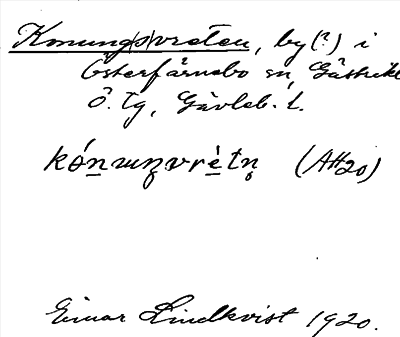 Konung(s)vreten, by(?) i
Österfärnebo sn, Gästrikl
ö. tg, Gävleb. l.
(AH20)
Einar Lindkvist 1920.